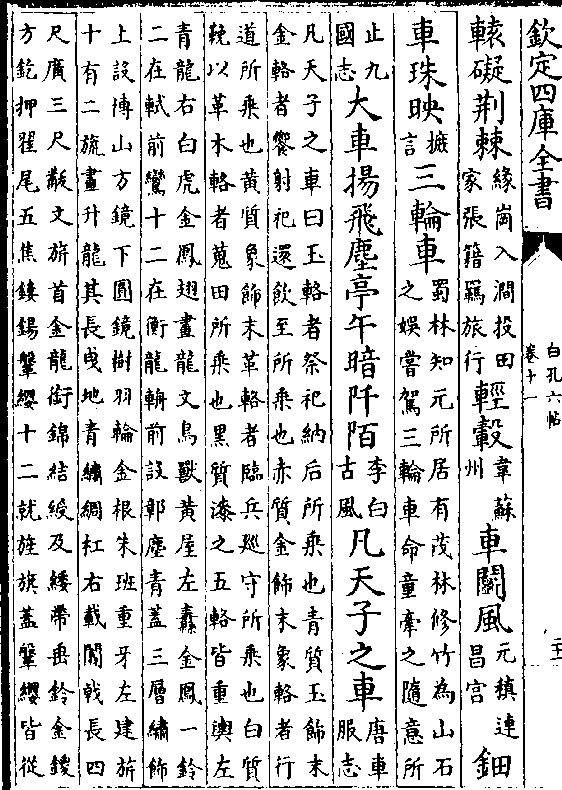 欽定四庫全書
白孔六帖
卷十一
轅礙荆棘緣崗入澗投田家張籍羈旅行輕轂韋蘇州車闘風元稹連昌宮鈿
車珠映摭言三輪車蜀林知元所居有茂林修竹為山石之娛嘗駕三輪車命童牽之隨意所
止九國志大車揚飛塵亭午暗阡陌李白古風凡天子之車唐車服志
凡天子之車曰玉輅者祭祀納后所乘也青質玉飾末
金輅者饗射祀還飲至所乘也赤質金飾末象輅者行
道所乘也黄質象飾末革輅者臨兵廵守所乘也白質
鞔以革木輅者蒐田所乘也黑質漆之五輅皆重輿左
青龍右白虎金鳳翅畫龍文鳥獸黄屋左纛金鳳一鈴
二在軾前鸞十二在衡龍輈前設鄣塵青蓋三層繡飾
上設博山方鏡下圓鏡樹羽輪金根朱班重牙左建旂
十有二旒畫升龍其長曵地青繡綢杠右載闒戟長四
尺廣三尺黻文旂首金龍銜錦結綬及緌帶垂鈴金鍐
方釳押翟尾五焦鏤鍚鞶纓十二就旌旗蓋鞶纓皆從